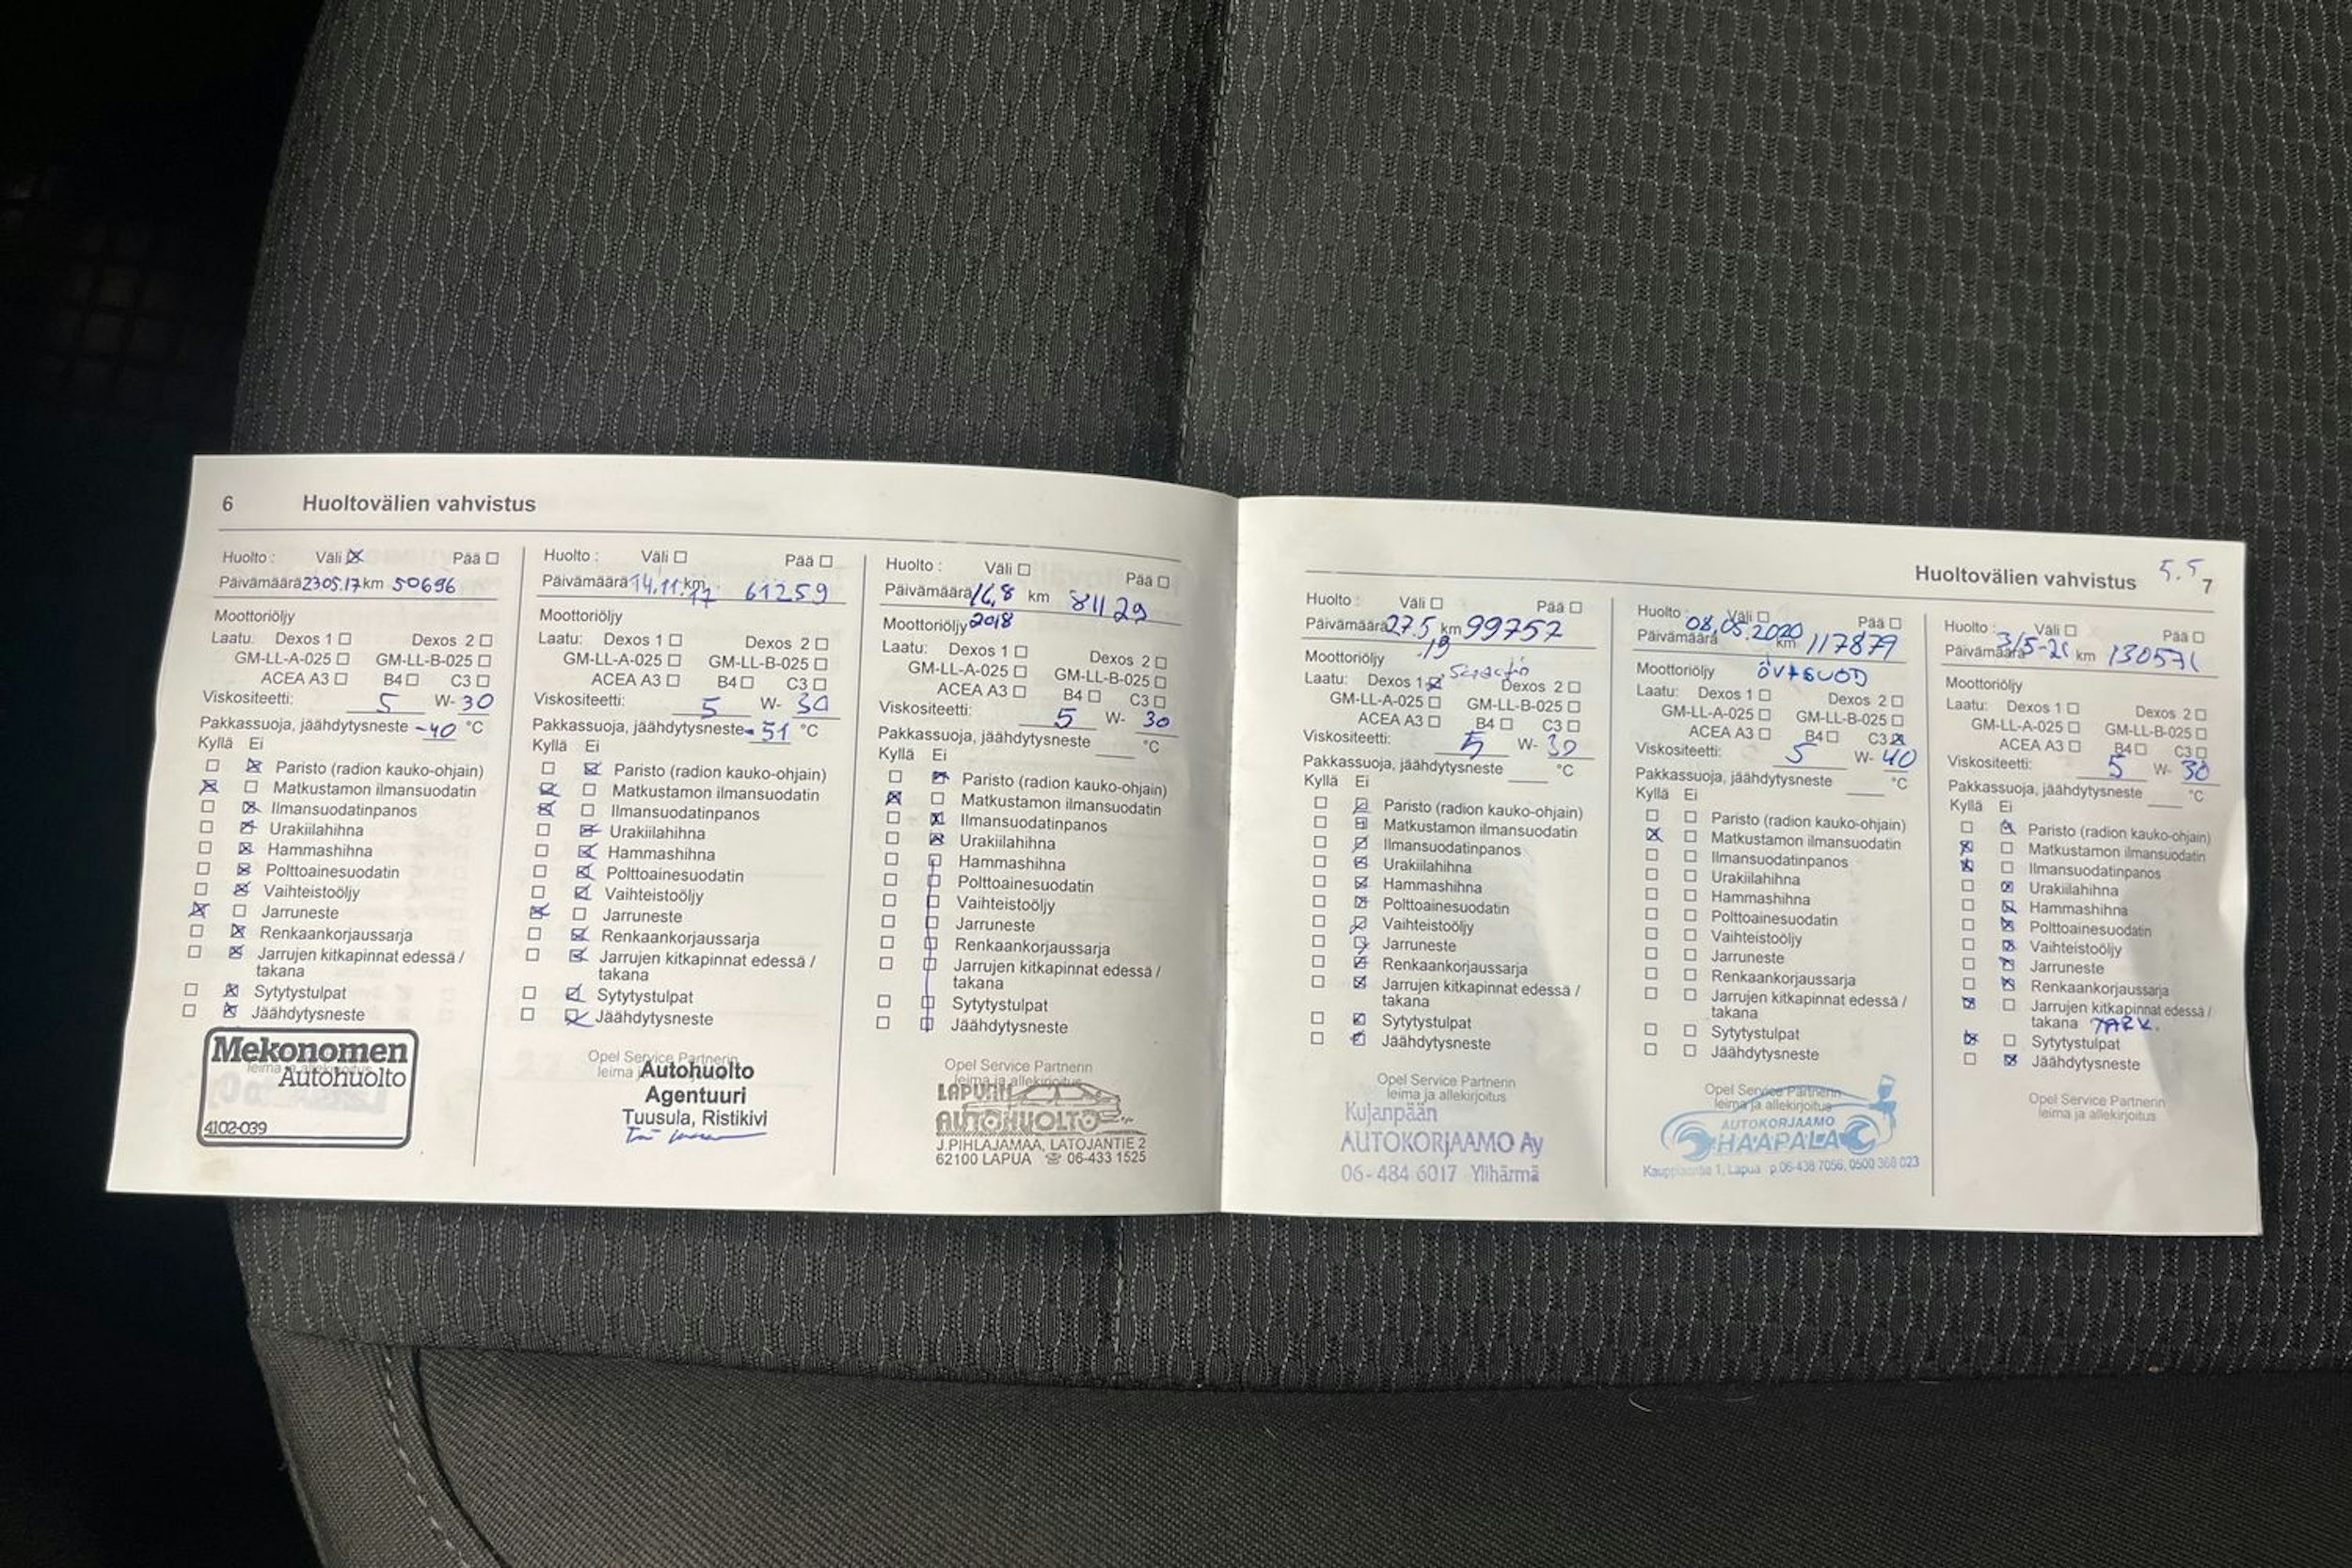 6 Huoltovälien vahvistus
Huolto : Väli ☒ Pää ☐
Päivämäärä 23.05.17 km 50696
Moottoriöljy
Laatu: Dexos 1 ☐ Dexos 2 ☐
GM-LL-A-025 ☐ GM-LL-B-025 ☐
ACEA A3 ☐ B4 ☐ C3 ☐
Viskositeetti: 5 W- 30
Pakkassuoja, jäähdytysneste -40 °C
Kyllä Ei
☐ ☒ Paristo (radion kauko-ohjain)
☒ ☐ Matkustamon ilmansuodatin
☐ ☒ Ilmansuodatinpanos
☐ ☒ Urakiilahihna
☐ ☒ Hammashihna
☐ ☒ Polttoainesuodatin
☐ ☒ Vaihteistoöljy
☒ ☐ Jarruneste
☐ ☒ Renkaankorjaussarja
☐ ☒ Jarrujen kitkapinnat edessä /
takana
☐ ☒ Sytytystulpat
☐ ☒ Jäähdytysneste
Mekonomen
leima ja allekirjoitus
Autohuolto
4102-039
Huolto : Väli ☐ Pää ☐
Päivämäärä 14.11.17 km 61259
Moottoriöljy
Laatu: Dexos 1 ☐ Dexos 2 ☐
GM-LL-A-025 ☐ GM-LL-B-025 ☐
ACEA A3 ☐ B4 ☐ C3 ☐
Viskositeetti: 5 W- 30
Pakkassuoja, jäähdytysneste -51 °C
Kyllä Ei
☐ ☒ Paristo (radion kauko-ohjain)
☒ ☐ Matkustamon ilmansuodatin
☒ ☐ Ilmansuodatinpanos
☐ ☒ Urakiilahihna
☐ ☒ Hammashihna
☐ ☒ Polttoainesuodatin
☐ ☒ Vaihteistoöljy
☒ ☐ Jarruneste
☐ ☒ Renkaankorjaussarja
☐ ☒ Jarrujen kitkapinnat edessä /
takana
☐ ☒ Sytytystulpat
☐ ☒ Jäähdytysneste
Opel Service Partnerin
leima ja allekirjoitus
Autohuolto
Agentuuri
Tuusula, Ristikivi
Huolto : Väli ☐ Pää ☐
Päivämäärä 16.8 km 81129
Moottoriöljy 2018
Laatu: Dexos 1 ☐ Dexos 2 ☐
GM-LL-A-025 ☐ GM-LL-B-025 ☐
ACEA A3 ☐ B4 ☐ C3 ☐
Viskositeetti: 5 W- 30
Pakkassuoja, jäähdytysneste °C
Kyllä Ei
☐ ☒ Paristo (radion kauko-ohjain)
☒ ☐ Matkustamon ilmansuodatin
☐ ☒ Ilmansuodatinpanos
☐ ☒ Urakiilahihna
☐ ☐ Hammashihna
☐ ☐ Polttoainesuodatin
☐ ☐ Vaihteistoöljy
☐ ☐ Jarruneste
☐ ☐ Renkaankorjaussarja
☐ ☐ Jarrujen kitkapinnat edessä /
takana
☐ ☐ Sytytystulpat
☐ ☐ Jäähdytysneste
Opel Service Partnerin
leima ja allekirjoitus
LAPUAN
AUTOHUOLTO
J.PIHLAJAMAA, LATOJANTIE 2
62100 LAPUA ☏ 06-433 1525
Huoltovälien vahvistus 5.5 7
Huolto : Väli ☐ Pää ☐
Päivämäärä 27.5 .19 km 99757
Moottoriöljy
Laatu: Dexos 1 ☒ Dexos 2 ☐
GM-LL-A-025 ☐ GM-LL-B-025 ☐
ACEA A3 ☐ B4 ☐ C3 ☐
Viskositeetti: 5 W- 30
Pakkassuoja, jäähdytysneste °C
Kyllä Ei
☐ ☒ Paristo (radion kauko-ohjain)
☐ ☒ Matkustamon ilmansuodatin
☐ ☒ Ilmansuodatinpanos
☐ ☒ Urakiilahihna
☐ ☒ Hammashihna
☐ ☒ Polttoainesuodatin
☐ ☒ Vaihteistoöljy
☐ ☒ Jarruneste
☐ ☒ Renkaankorjaussarja
☐ ☒ Jarrujen kitkapinnat edessä /
takana
☐ ☒ Sytytystulpat
☐ ☒ Jäähdytysneste
Opel Service Partnerin
leima ja allekirjoitus
Kujanpään
AUTOKORJAAMO Ay
06-484 6017 Ylihärmä
Huolto : Väli ☐ Pää ☐
Päivämäärä 08.05.2020 km 117879
Moottoriöljy ÖV+SUOD
Laatu: Dexos 1 ☐ Dexos 2 ☐
GM-LL-A-025 ☐ GM-LL-B-025 ☐
ACEA A3 ☐ B4 ☐ C3 ☒
Viskositeetti: 5 W- 40
Pakkassuoja, jäähdytysneste °C
Kyllä Ei
☐ ☐ Paristo (radion kauko-ohjain)
☒ ☐ Matkustamon ilmansuodatin
☐ ☐ Ilmansuodatinpanos
☐ ☐ Urakiilahihna
☐ ☐ Hammashihna
☐ ☐ Polttoainesuodatin
☐ ☐ Vaihteistoöljy
☐ ☐ Jarruneste
☐ ☐ Renkaankorjaussarja
☐ ☐ Jarrujen kitkapinnat edessä /
takana
☐ ☐ Sytytystulpat
☐ ☐ Jäähdytysneste
Opel Service Partnerin
leima ja allekirjoitus
AUTOKORJAAMO
HAAPALA
1, Lapua p.06-438 7056, 0500 368 023
Huolto : Väli ☐ Pää ☐
Päivämäärä 3/5-21 km 130571
Moottoriöljy
Laatu: Dexos 1 ☐ Dexos 2 ☐
GM-LL-A-025 ☐ GM-LL-B-025 ☐
ACEA A3 ☐ B4 ☐ C3 ☐
Viskositeetti: 5 W- 30
Pakkassuoja, jäähdytysneste °C
Kyllä Ei
☐ ☒ Paristo (radion kauko-ohjain)
☒ ☐ Matkustamon ilmansuodatin
☒ ☐ Ilmansuodatinpanos
☐ ☒ Urakiilahihna
☐ ☒ Hammashihna
☐ ☒ Polttoainesuodatin
☐ ☒ Vaihteistoöljy
☐ ☒ Jarruneste
☐ ☒ Renkaankorjaussarja
☒ ☐ Jarrujen kitkapinnat edessä /
takana TARK.
☒ ☐ Sytytystulpat
☐ ☒ Jäähdytysneste
Opel Service Partnerin
leima ja allekirjoitus